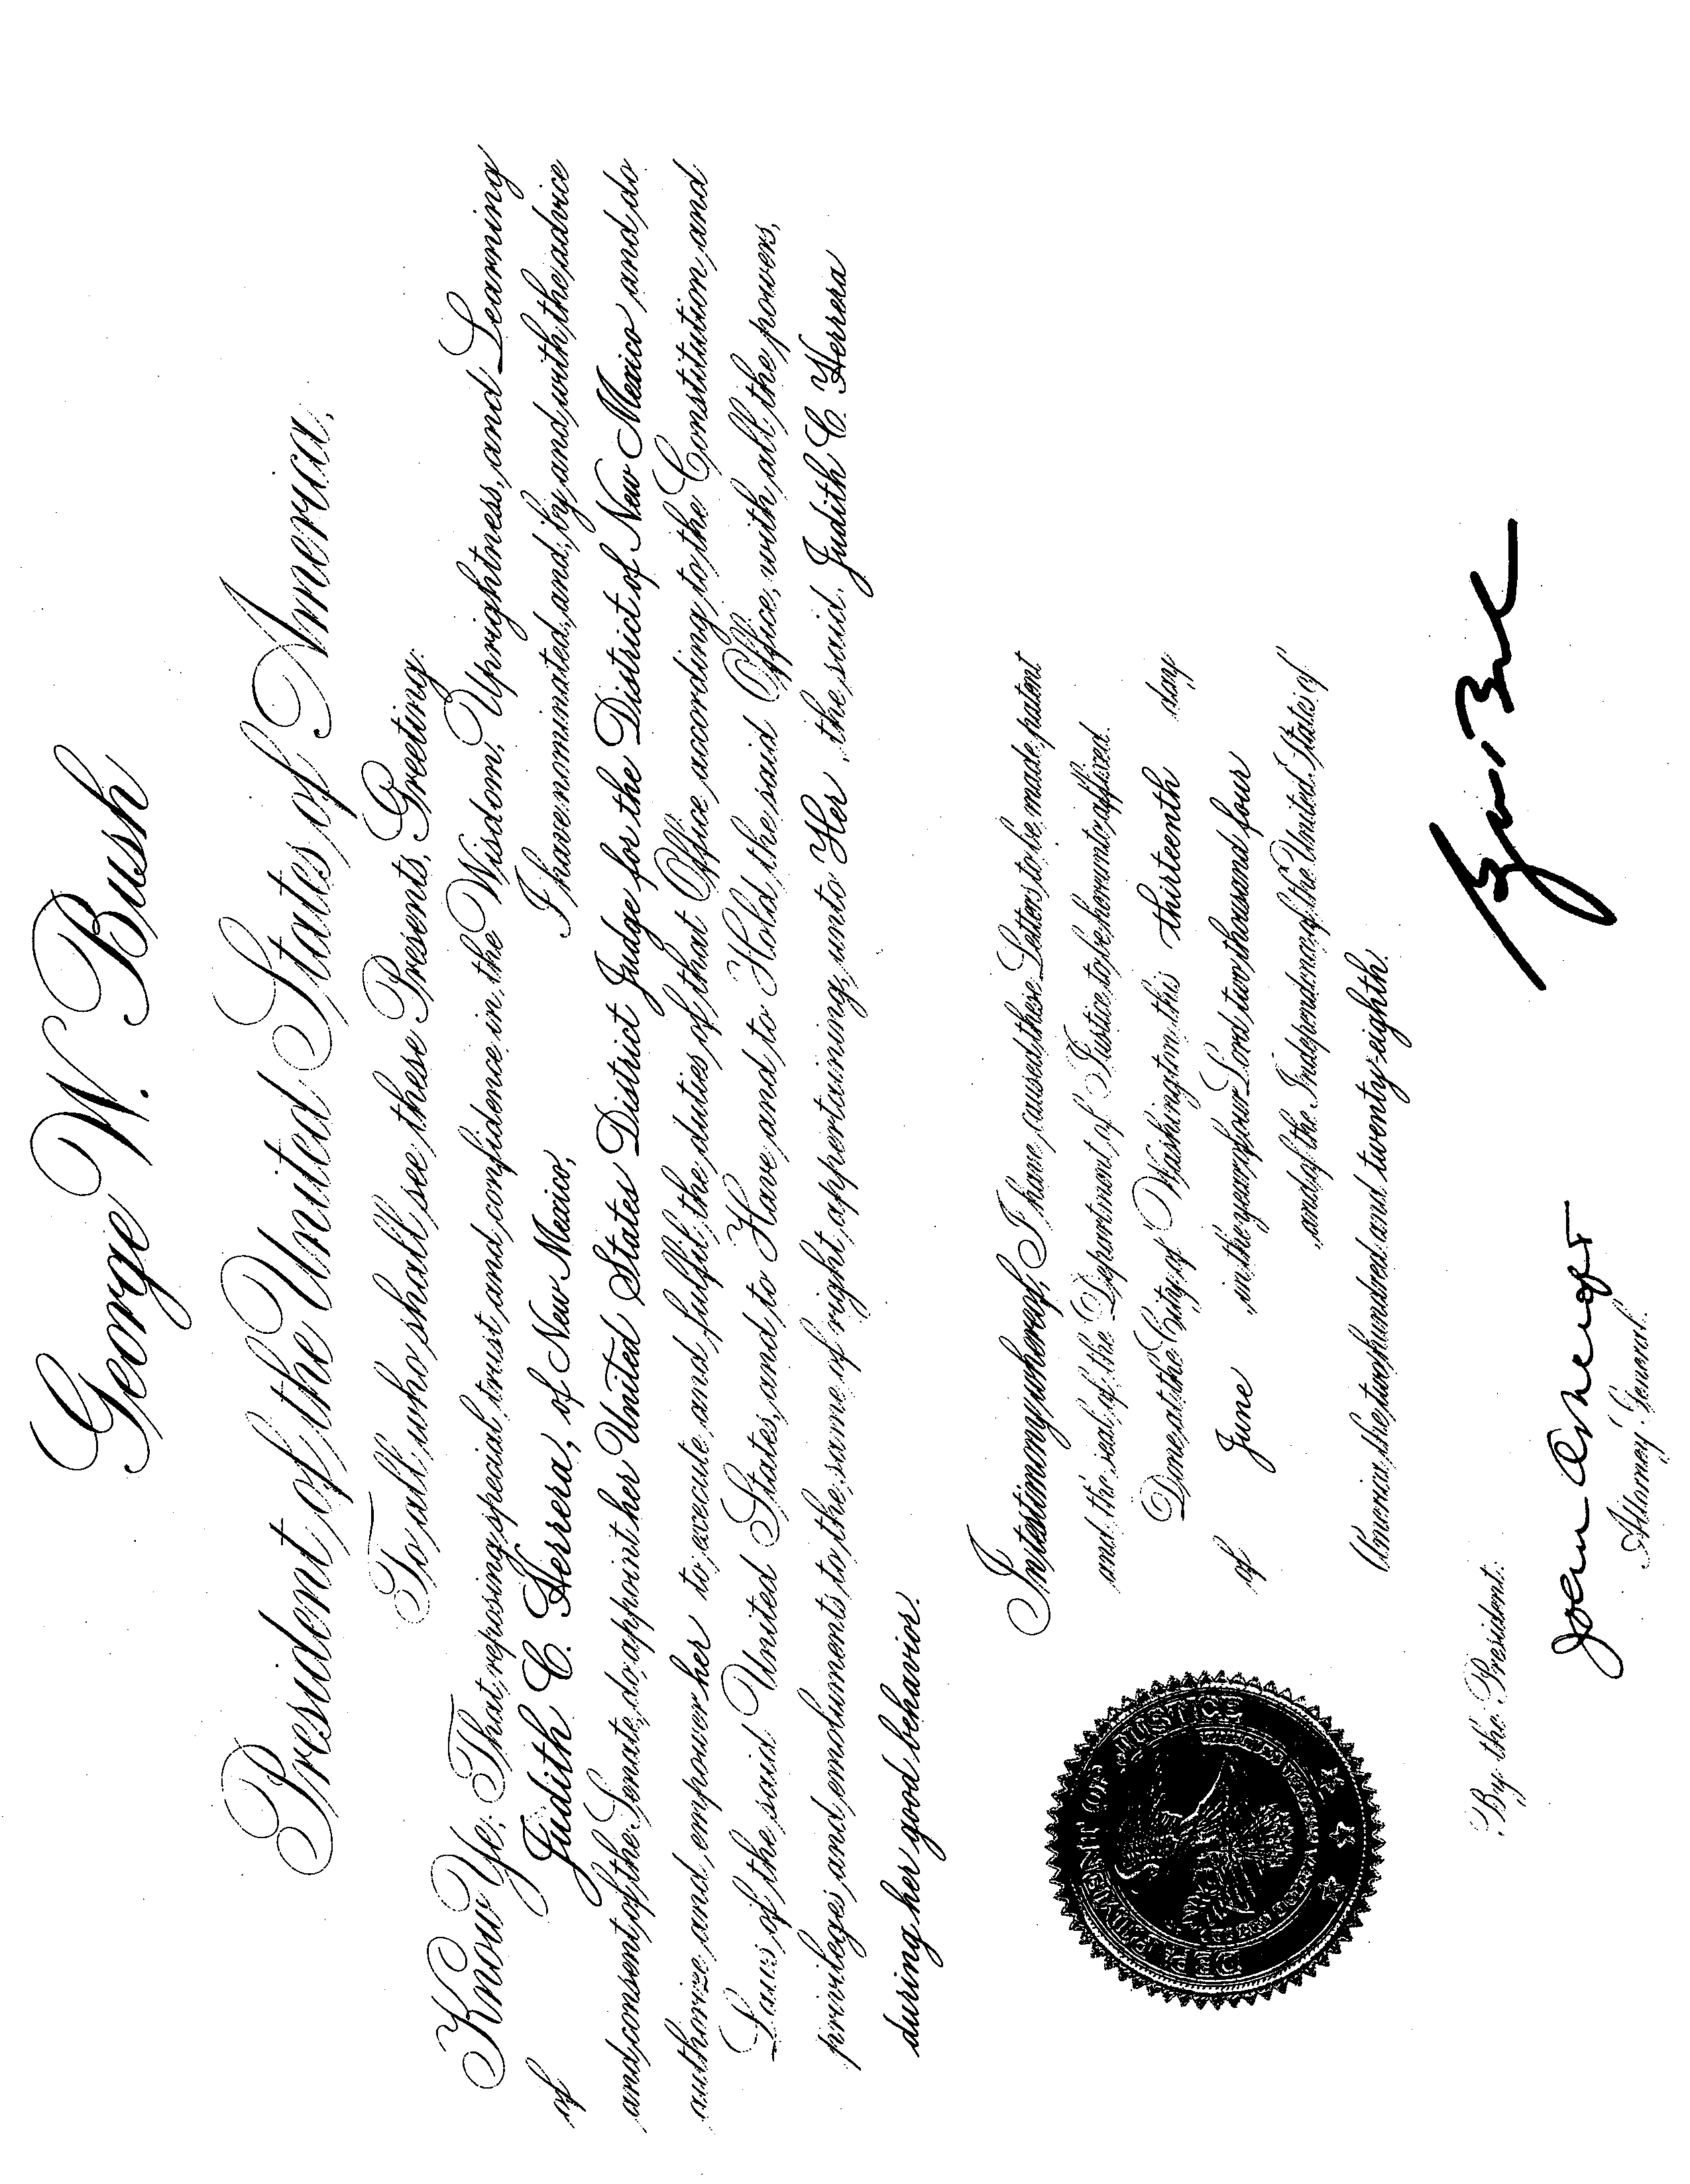 George W. Bush
President of the United States of America,
To all who shall see these Presents, Greeting:
Know Ye: That reposing special trust and confidence in the Wisdom, Uprightness, and Learning
of Judith C. Herrera, of New Mexico, I have nominated, and, by and with the advice
and consent of the Senate, do appoint her United States District Judge for the District of New Mexico and do
authorize and empower her to execute and fulfil the duties of that Office according to the Constitution and
Laws of the said United States, and to Have and to Hold the said Office, with all the powers,
privileges and emoluments to the same of right appertaining, unto Her, the said Judith C. Herrera
during her good behavior.
In testimony whereof, I have caused these Letters to be made patent
and the seal of the Department of Justice to be hereunto affixed.
Done at the City of Washington this thirteenth day
of June in the year of our Lord two thousand four
and of the Independence of the United States of
America the two hundred and twenty-eighth.
DEPARTMENT OF JUSTICE
By the President:
John Ashcroft
Attorney General.